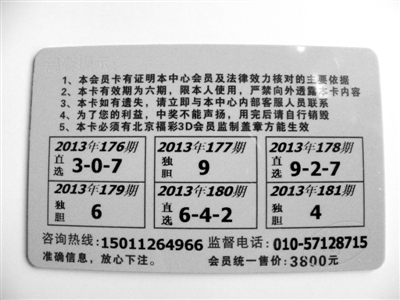 1、本会员卡有证明本中心会员及法律效力核对的主要依据
2、本卡有效期为六期，限本人使用，严禁向外透露本卡内容
3、本卡如有遗失，请立即与本中心内部客服人员联系
4、为了您的利益，中奖不能声扬，用完后请自行销毁
5、本卡必须有北京福彩3D会员监制盖章方能生效
2013年176期 2013年177期 2013年178期
直选 3-0-7 独胆 9 直选 9-2-7
2013年179期 2013年180期 2013年181期
独胆 6 直选 6-4-2 独胆 4
咨询热线：15011264966 监督电话：010-57128715
准确信息，放心下注。 会员统一售价：3800元